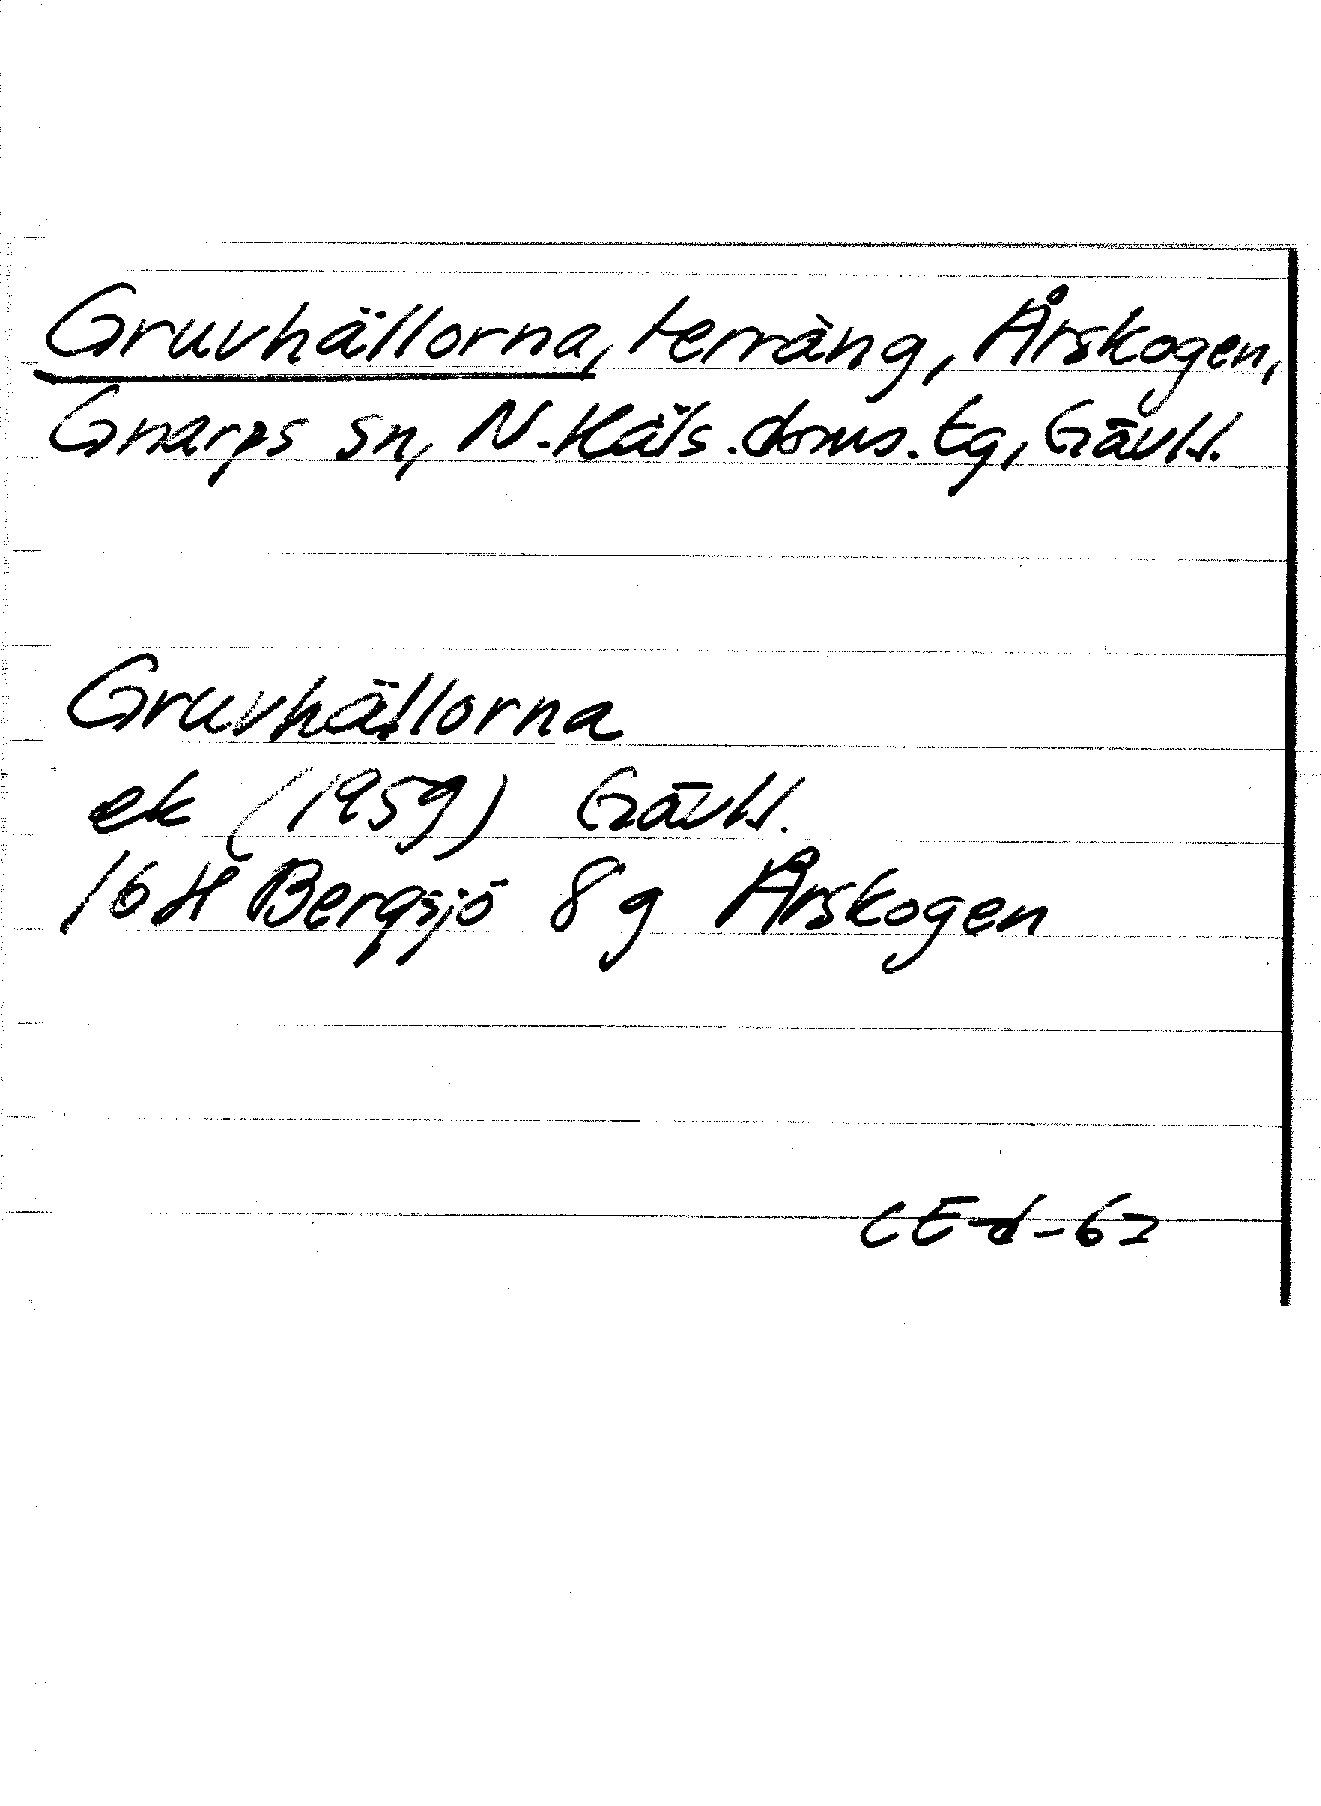 Gruvhällorna, terräng, Årskogen,
Gnarps sn, N. Häls. doms. tg, Gävll.
Gruvhällorna
ek (1959) Gävll.
16H Bergsjö 8g Årskogen
CEd-62